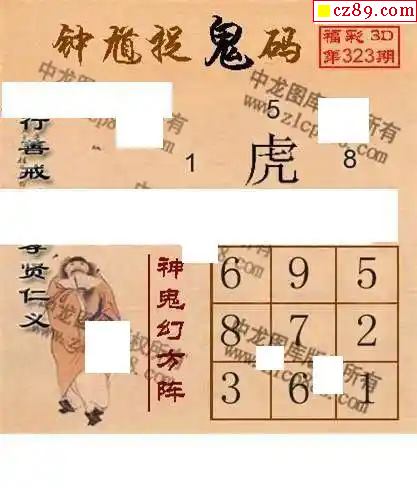 cz89.com
钟馗捉鬼码
福彩3D
第323期
5
1 虎 8
行善戒
尊贤仁义
神鬼幻方阵
6 9 5
8 7 2
3 6 1
中龙图库